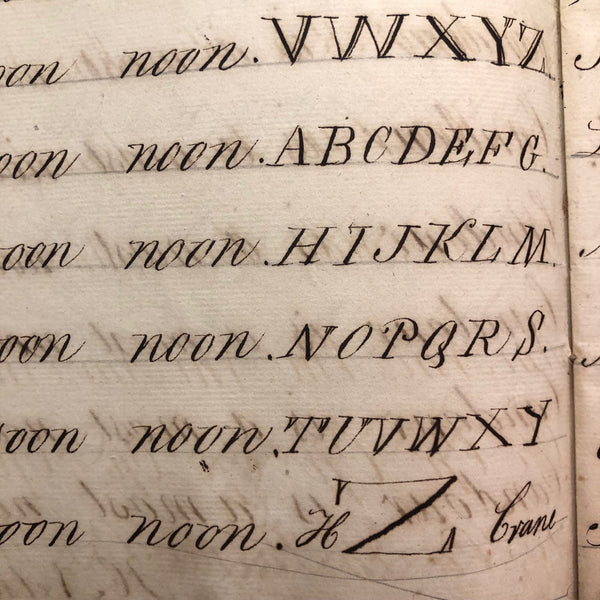 oon noon. VWXYZ
oon noon. ABCDEFG.
oon noon. HIJKLM.
oon noon. NOPQRS.
oon noon. TUVWXY
oon noon. H Z Crane